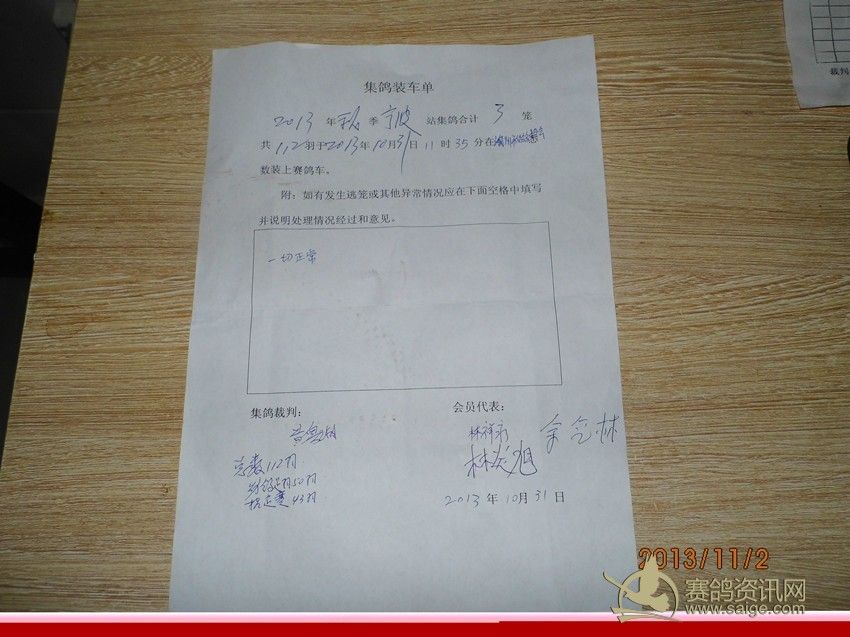 集鸽装车单
2013 年 秋 季 宁波 站集鸽合计 3 笼
共 112 羽于 2013 年 10 月 31 日 11 时 35 分在
数装上赛鸽车。
附：如有发生逃笼或其他异常情况应在下面空格中填写
并说明处理情况经过和意见。
一切正常
集鸽裁判： 会员代表：
林祥永 余念林
林炎旭
总数112羽
50羽
指定赛43羽
2013 年 10 月 31 日
裁判
2013/11/2
赛鸽资讯网
www.saige.com